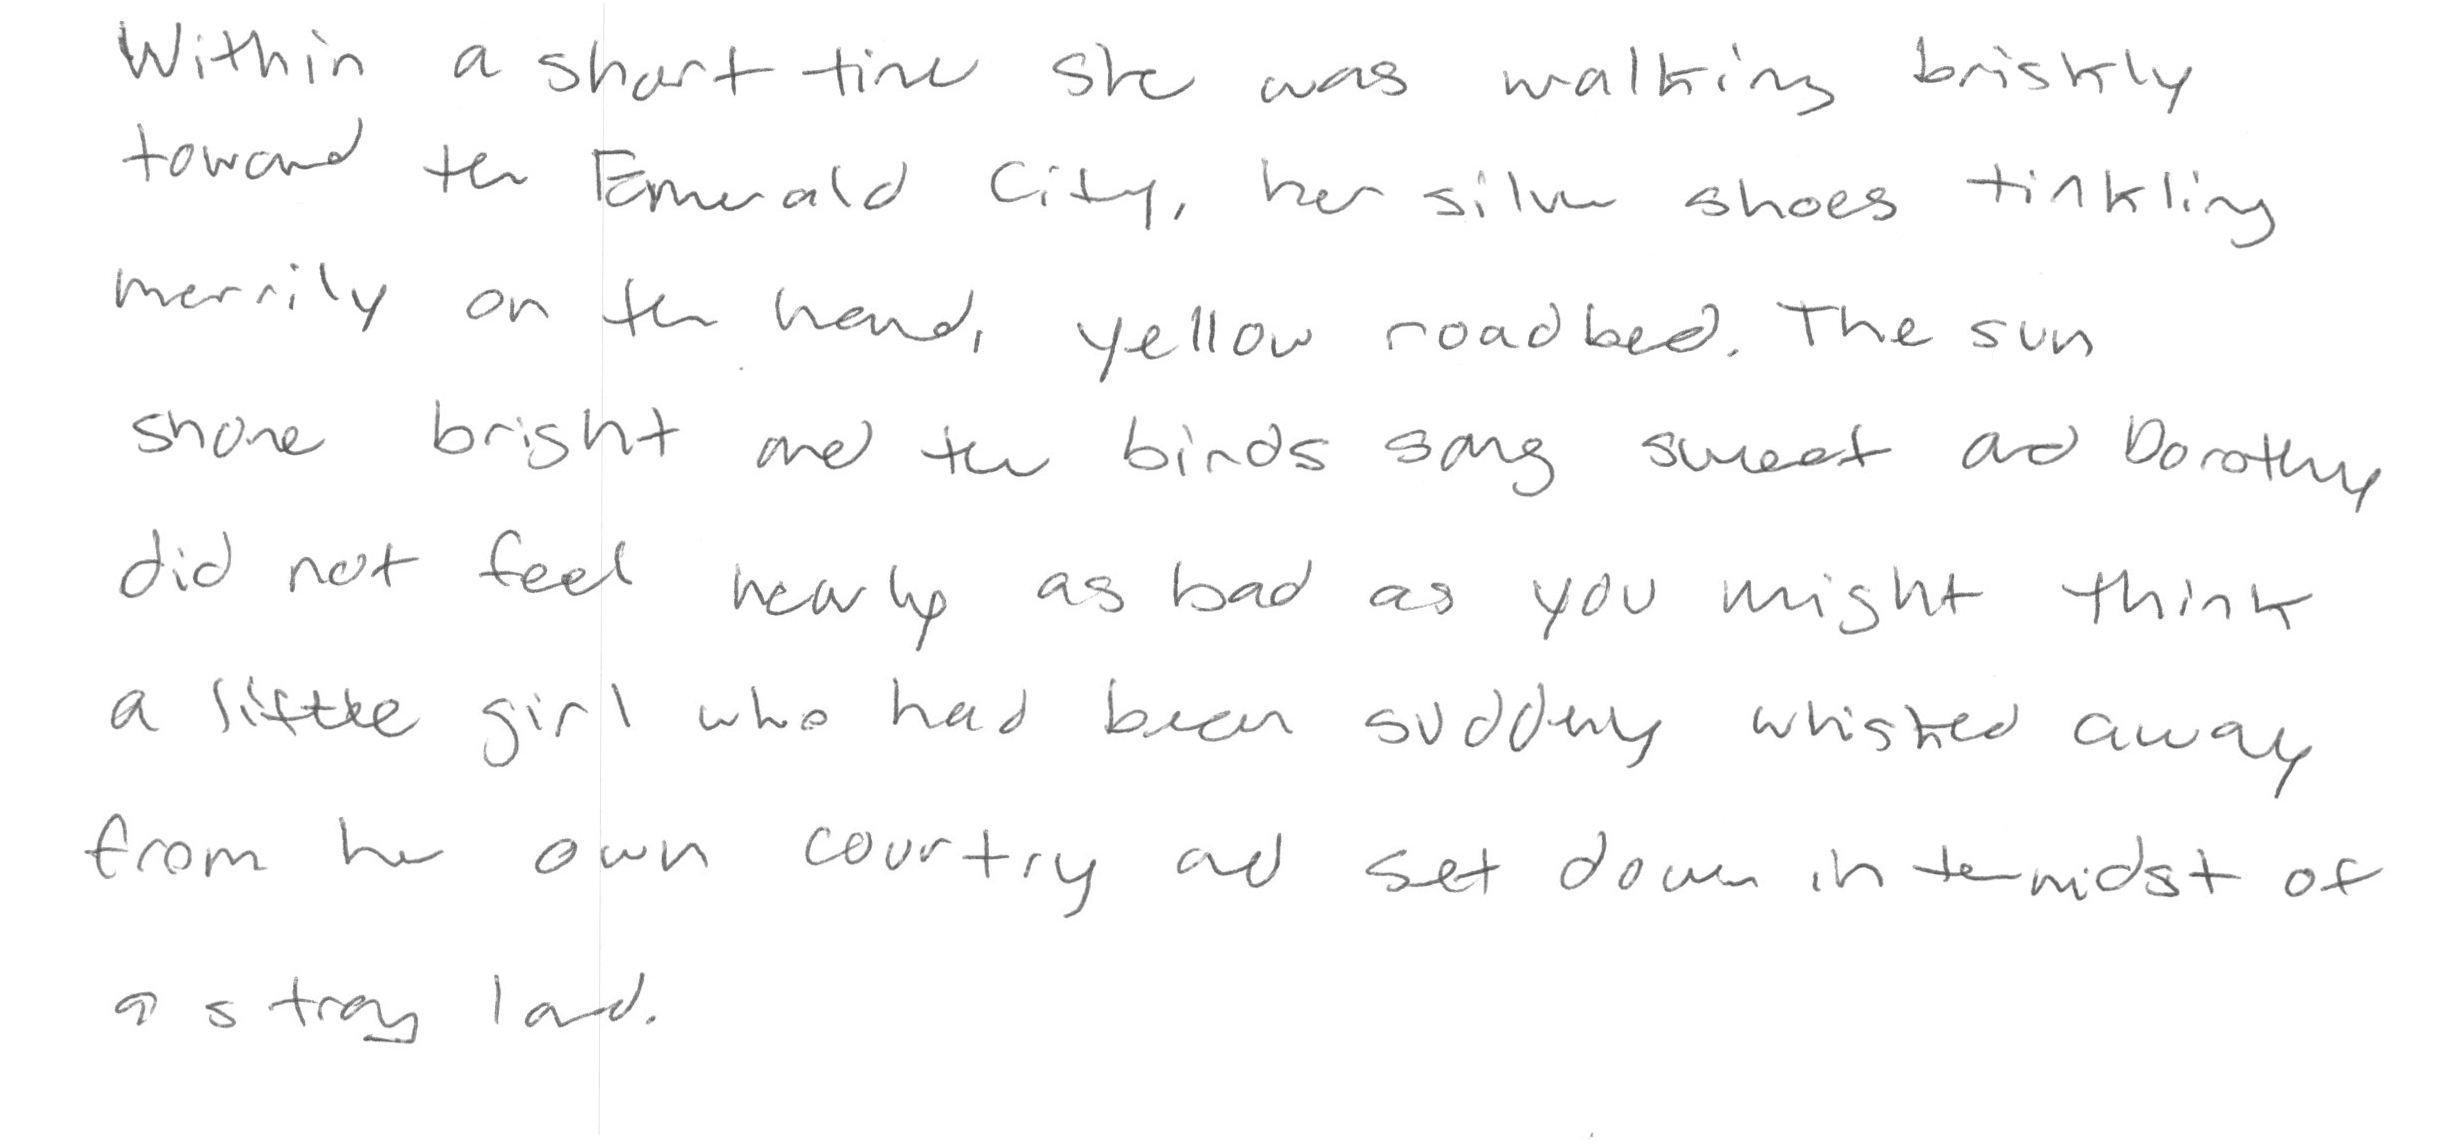 Within a short time she was walking briskly
toward the Emerald City, her silver shoes tinkling
merrily on the hard, yellow roadbed. The sun
shone bright and the birds sang sweet and Dorothy
did not feel nearly as bad as you might think
a little girl who had been suddenly whisked away
from her own country and set down in the midst of
a strange land.